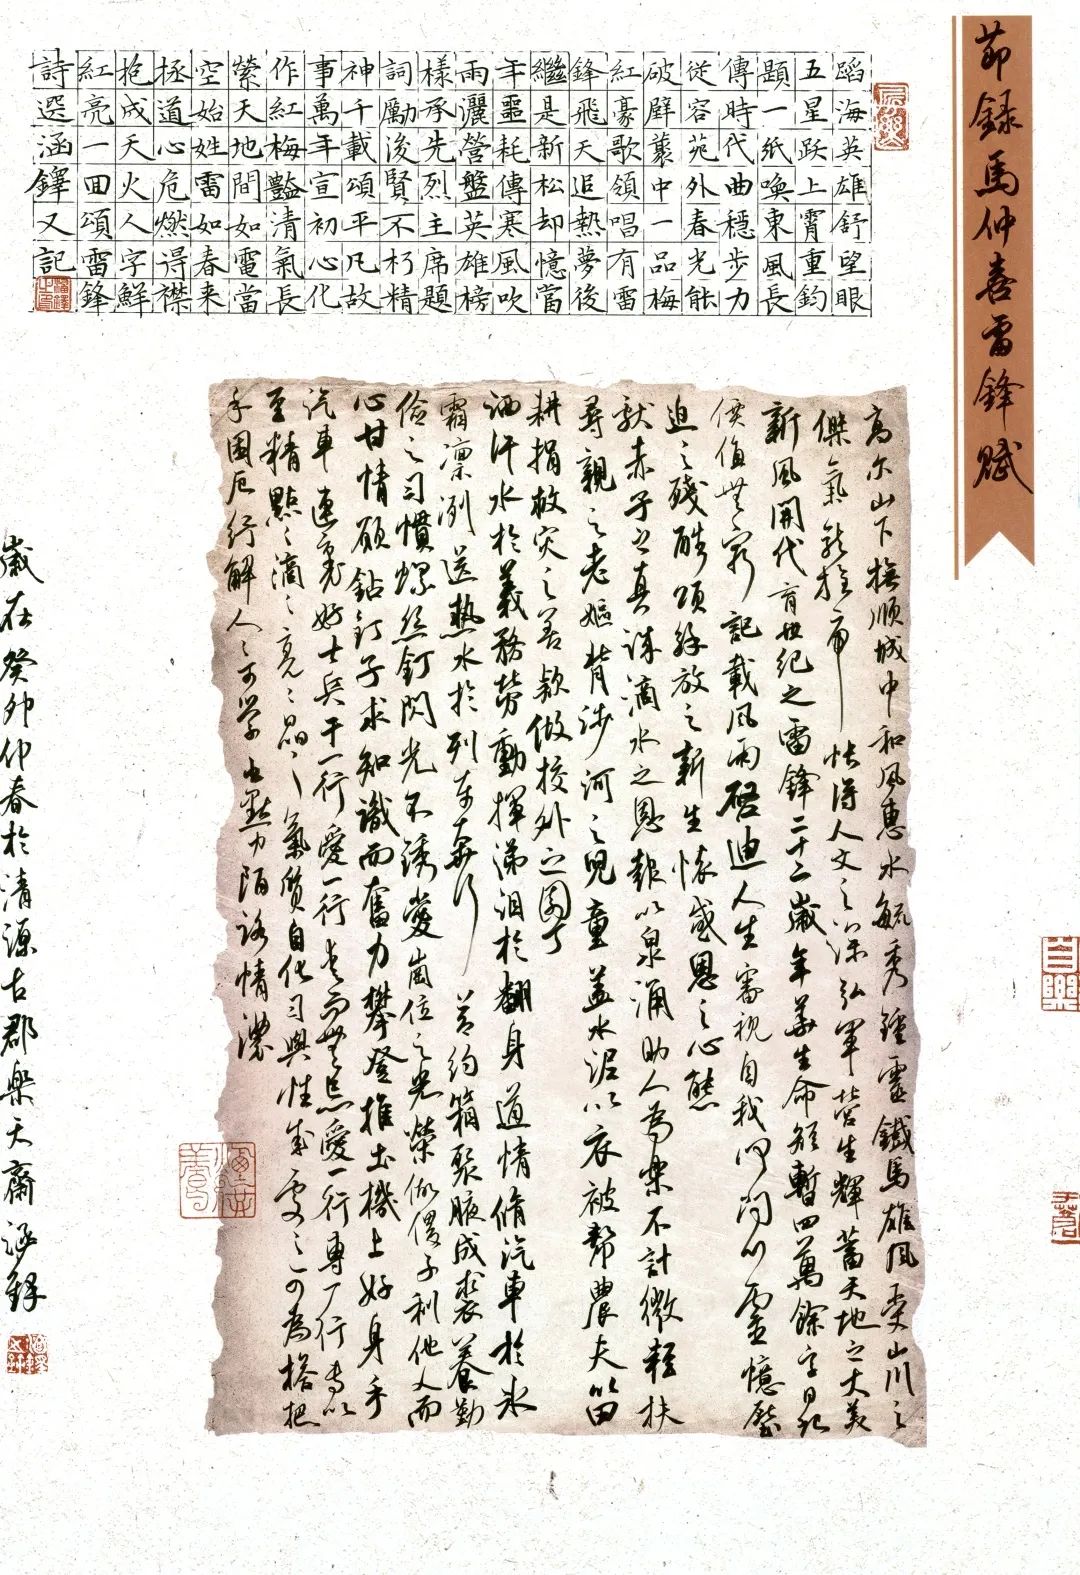 節録馬仲喜雷鋒賦
蹈海英雄舒望眼
五星跃上霄重鈞
題一紙喚東風長
傳時代曲穩步力
從容苑外春光能
破壁中一品梅
紅豪歌領唱有雷
鋒飛天追熱夢後
繼是新松却憶當
年噩耗傳寒風吹
雨灑營盤英雄榜
樣承先烈主席題
詞勵後賢不朽精
神千載頌平凡故
事萬年宣初心化
作紅梅豔清氣長
縈天地間如電當
空始姓雷如春来
拯道心危燃得襟
抱成天火人字鮮
紅亮一回頌雷鋒
詩選涵鐸又記
高尔山下撫順城中和風惠水毓秀鍾靈鐵馬雄風壹山川之
傑氣龍旌帟帳得人文之深弘軍營生輝蓄天地之大美
新風開代育世紀之雷鋒二十二歲年華生命短暫四萬餘字日記
價值無窮記載風雨啓迪人生審視自我捫心憶壓
迫之殘酷頌解放之新生懷感恩之心態
獻赤子之真誠滴水之恩報以泉涌助人為樂不計微輕扶
尋親之老嫗背涉河之兒童盖水泥以衣被幫農夫以
耕捐救灾之善款做校外之園丁
洒汗水於義務勞動揮涕泪於翻身道情脩汽車於氷
霜凛冽送熱水於列车奔行節約箱聚腋成裘養勤
儉之習慣螺丝釘閃光不銹愛崗位之光榮做傻子利他人而
心甘情願鈷釘子求知識而奮力攀登推土機上好身手
汽車連裏好士兵干一行愛一行愛一行專一行專以
至精點之滴之亮之晶之氣質自化習與性成要之可為榜把
手困厄行解人之可學陌路情濃
歲在癸卯仲春於清源古郡樂天齋涵鐸